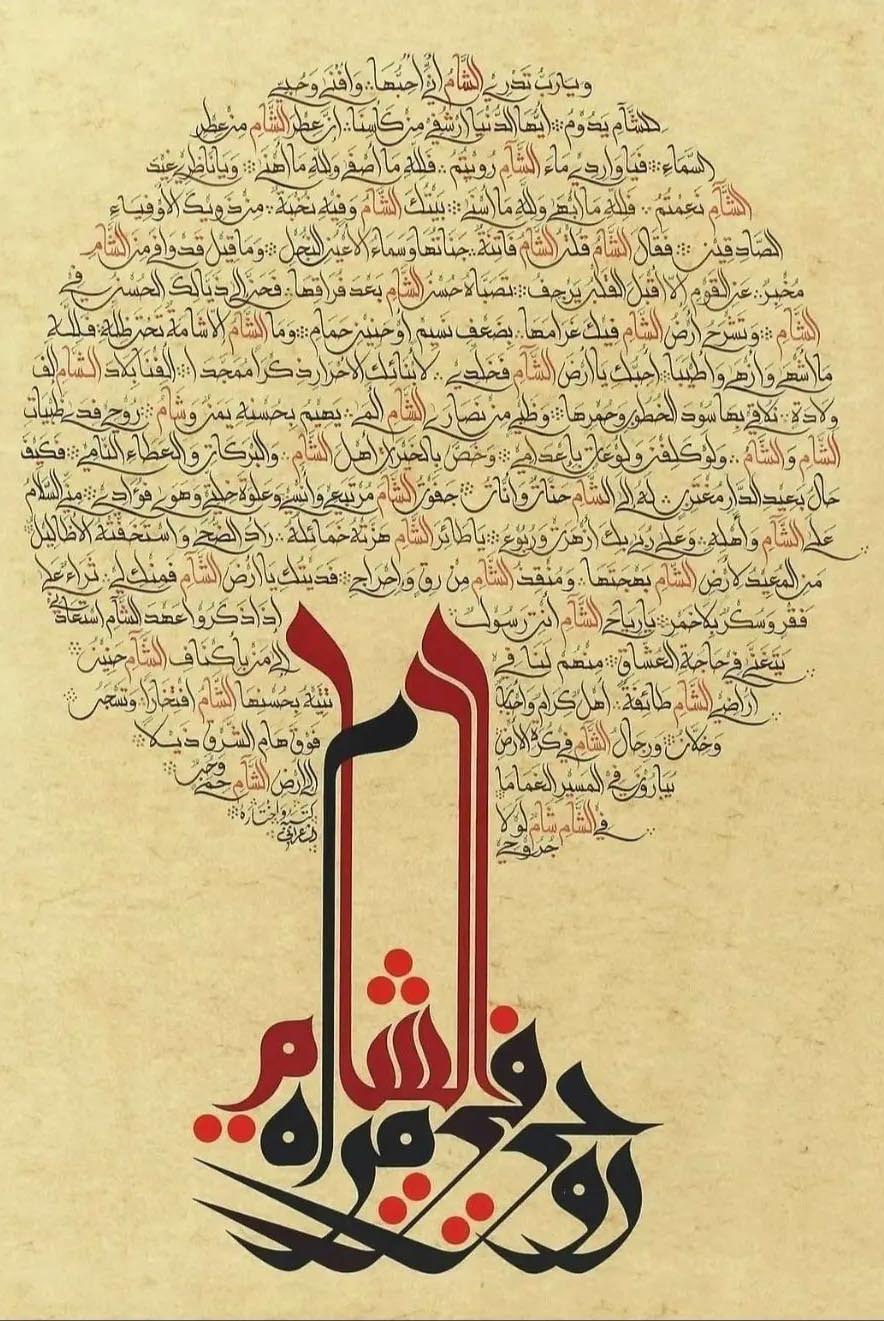 ويارب تدري الشام أني أحبها وأفنى وحبي
للشام يدوم أيها الدنيا ارشفي من كأسنا إن عطر الشام من عطر
السماء فيا واردي ماء الشام رويتم فلله ما أصفى ولله ما أهنى ويا ناظري عيد
الشام نعمتم فلله ما أبهى ولله ما أسنى بيتك الشام وفيه نخبة من ذويك الأوفياء
الصادقين فقال الشام قلت الشام فاتنة جناتها وسماء الأعين النجل وما قيل قد وافى من الشام
مخبر عن القوم إلا أقبل القلب يرجف تصباه حسن الشام بعد فراقها فحن إلى ذيالك الحسن في
الشام وتسرح أرض الشام فيك غرامها بضعف نسيم أو حنين حمام وما الشام إلا شامة تحت ظله فلله
ما أشهى وأزهى وأطيبا أحبك يا أرض الشام فخلدي لأبنائك الأحرار ذكرا ممجدا ألفنا بلاد الشام إلف
ولادة نلاقي بها سود الخطوب وحمرها وظبي من نصارى الشام ألمى يهيم بحسنه يمن وشام روحي فدى ظبيات
الشام والشام ولو كلفن ولوعات بإعدامي وخص بالخير أهل الشام والبركات والعطاء النامي فكيف
حال بعيد الدار مغترب له إلى الشام حنات وأنات جفون الشام مرتبعي وأنسي وعلوة خلتي وهوى فؤادي مني السلام
على الشام وأهله وعلى ربى بك أزهرت وربوع يا طائر الشام هزته خمائله راد الضحى واستخفته الأظاليل
من المعيد لأرض الشام بهجتها ومنقذ الشام من رق وإحراج فديتك يا أرض الشام فمنك لي ثراء على
فقر وسكر بلا خمر يا رياح الشام أنت رسول إذا ذكروا عهد الشام استعادني
يتغنى في حاجة العشاق منهم لنا في إلى من بأكناف الشام حنين
أراضي الشام طائفة أهل كرام وأحباب تتيه بحسنها الشام افتخارا وتسحب
وخلات ورجال الشام في كرة الأرض فوق هام الشرق ذيلا
يبارون في المسير الغماما إلى أرض الشام حمى وحب
في الشام شام لولا كتبه واختاره
جروحي
الشام
روحي في مرآة